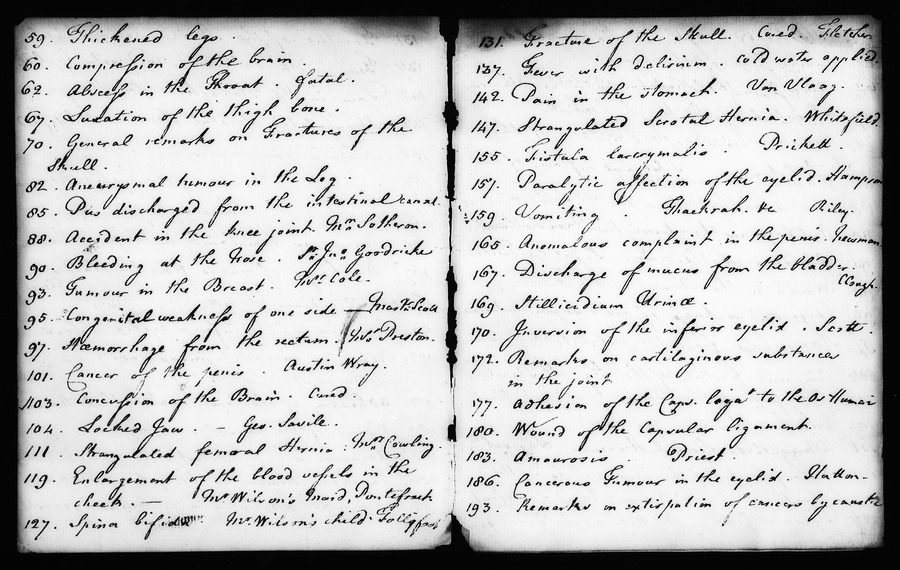 59. Thickened legs.
60. Compression of the brain.
62. Abscess in the Throat. fatal.
67. Luxation of the thigh bone.
70. General remarks on Fractures of the
Skull.
82. Aneurysmal tumour in the Leg.
85. Pus discharged from the intestinal canal.
88. Accident in the knee joint. Mrs Sotheron.
90. Bleeding at the Nose. Sr Jno Goodricke
93. Tumour in the Breast. Mrs Cole.
95. Congenital weakness of one side — Mastr Scott
97. Hæmorrhage from the rectum. Preston.
101. Cancer of the penis. Austin Wray.
103. Concussion of the Brain. Cured.
104. Locked Jaw. — Geo. Savile.
111. Strangulated femoral Hernia. Mrs Cowling
119. Enlargement of the blood vessels in the
cheek. — Mr Wilson's Maid, Pontefract
127. Spina bifida Mr Wilson's child.
131. Fracture of the Skull. Cured. Fletcher
137. Fever with delirium. cold water applied.
142. Pain in the stomach. Van Vlaag.
147. Strangulated Scrotal Hernia. Whitefield.
155. Fistula lacrymalis. Prickett.
157. Paralytic affection of the eyelid. Hampson
159. Vomiting. Thackrah. &c Riley.
165. Anomalous complaint in the penis. Newman.
167. Discharge of mucus from the bladder.
Clough.
169. Stillicidium Urinæ.
170. Inversion of the inferior eyelid. Scott.
172. Remarks on cartilaginous substances
in the joint
177. Adhesion of the Caps. ligat to the Os Humeri
180. Wound of the capsular ligament.
183. Amaurosis Priest.
186. Cancerous Tumour in the eyelid. Hatton.
193. Remarks on extirpation of cancers by caustic